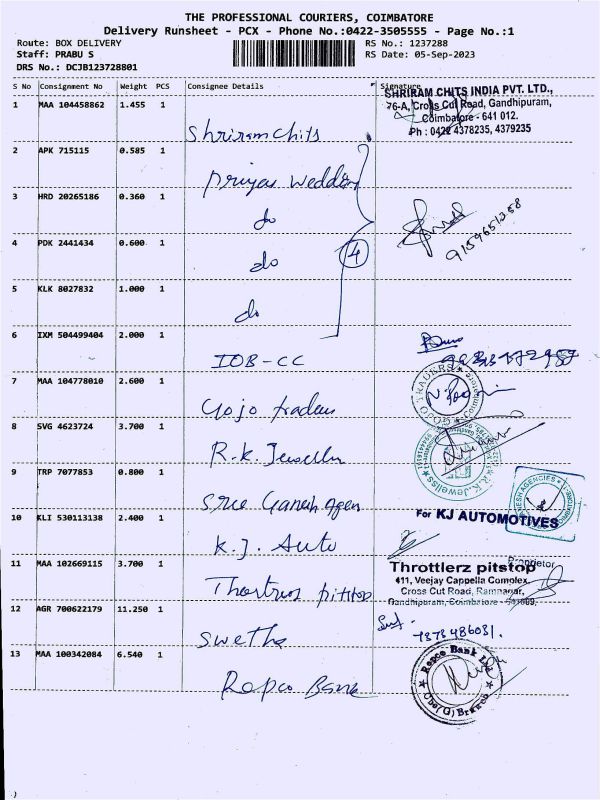 THE PROFESSIONAL COURIERS, COIMBATORE
Delivery Runsheet - PCX - Phone No.:0422-3505555 - Page No.:1
Route: BOX DELIVERY
RS No.: 1237288
Staff: PRABU S
RS Date: 05-Sep-2023
DRS No.: DCJB123728801
S No Consignment No Weight PCS Consignee Details Signature
SHRIRAM CHITS INDIA PVT. LTD.,
76-A, Cross Cut Road, Gandhipuram,
Coimbatore - 641 012.
Ph : 0422 4378235, 4379235
1 MAA 104458862 1.455 1
Shriram chits
2 APK 715115 0.585 1
Priyas wedding
3 HRD 20265186 0.360 1
do
4 PDK 2441434 0.600 1
do
4
5 KLK 8027832 1.000 1
do
6 IXM 504499404 2.000 1
IOB-CC
7 MAA 104778010 2.600 1
Gojo traders
GOJO TRADERS
8 SVG 4623724 3.700 1
R.K. Jeweller
R.K.Jewellss
9 TRP 7077853 0.800 1
Sree Ganesh Agen
AGENCIES
10 KLI 530113138 2.400 1
K.J. Auto
For KJ AUTOMOTIVES
Proprietor
11 MAA 102669115 3.700 1
pitstop
Throttlerz pitstop
411, Veejay Cappella Complex,
Cross Cut Road, Ramnagar,
Gandhipuram, Coimbatore
12 AGR 700622179 11.250 1
Swetha
7373486031.
13 MAA 100342084 6.540 1
Repco Bank
Repco Bank Ltd
Branch